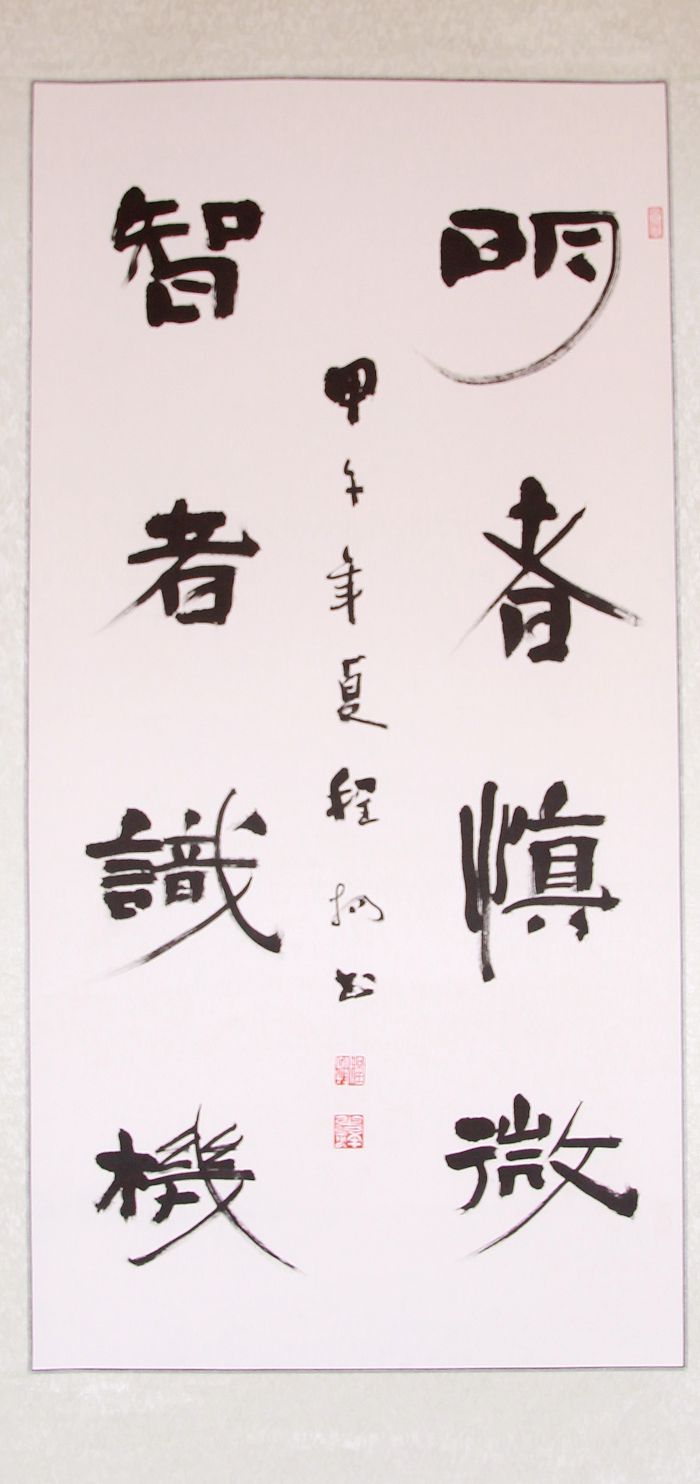 明者慎微
智者識機
甲午年夏程扬书